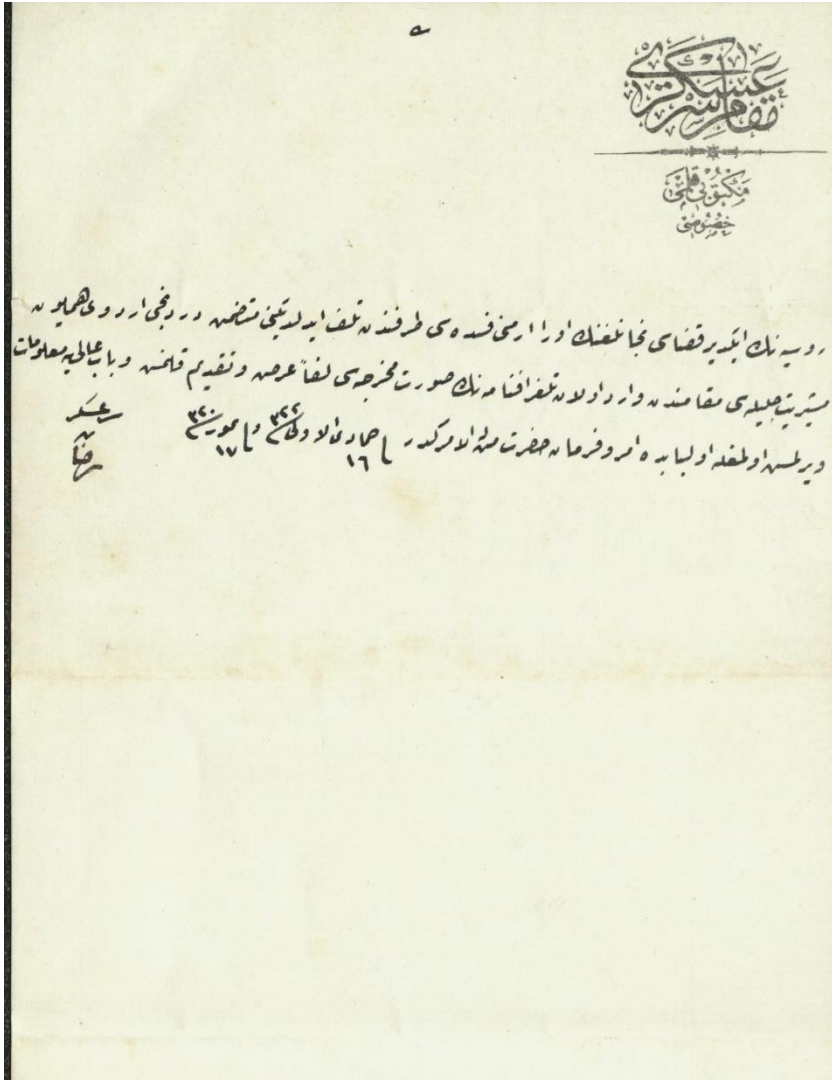 مقام سر عسكرى
مكتوبى قلمى
خصوصى
روسيه نك ايكدير قضاسى نچالنغنك اورا ارمنى فسده سى طرفندن تلف ايدلديكنى متضمن دردنجى اردوى همايون
مشيريت جليله سى مقامندن وارد اولان تلغرافنامه نك صورت مخرجه سى لفاً عرض وتقديم قلنمش وباب عالى يه معلومات
ويرلمش اولمغله اولبابده امر وفرمان حضرت من له الامركدر فى ١٦ جمادى الاولى سنه ٣٢٢ وفى ١٧ تموز سنه ٣٢٠
سر عسكر
رضا